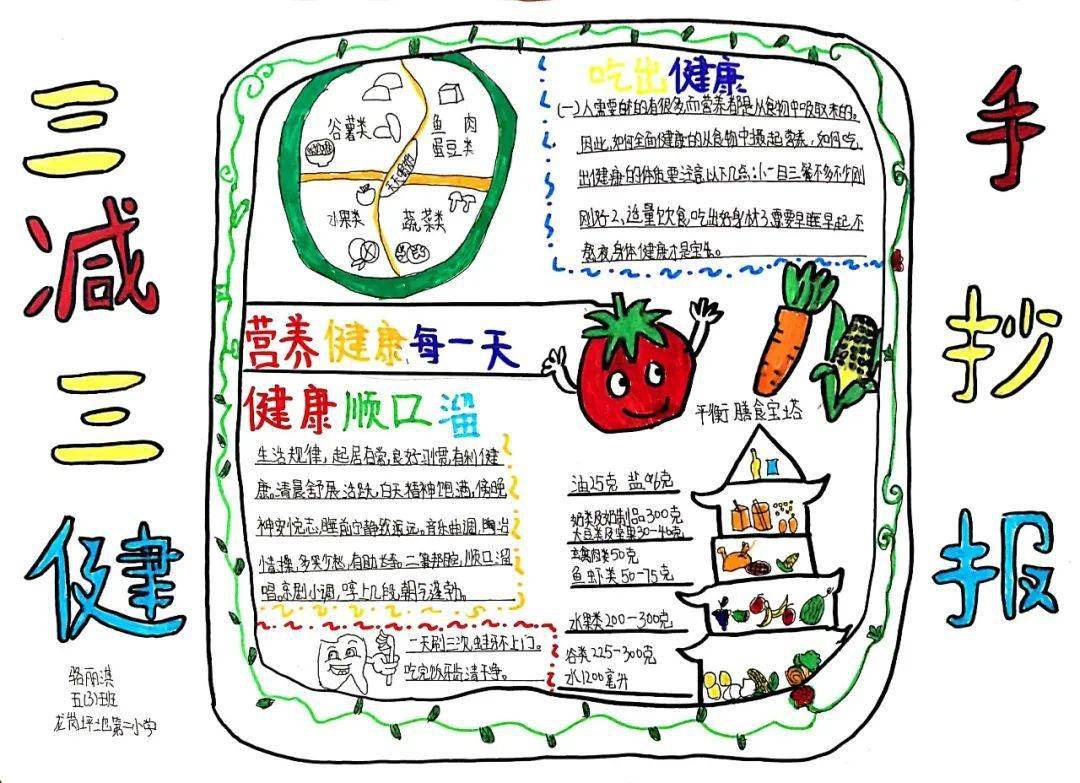 三减三健
手抄报
谷薯类
鱼 肉
蛋豆类
水果类
蔬菜类
吃出健康
(一)人需要的的有很多,而营养都是从食物中吸取来的。
因此,如何全面健康的从食物中摄起营养,如何吃
出健康的体魄要注意以下几点:小一日三餐不多不少刚
刚好2、适量饮食吃出好身材3需要早睡早起不
熬夜身体健康才是宝贝。
营养健康每一天
健康顺口溜
生活规律,起居有常,良好习惯,有利健
康。清晨舒展活跃,白天精神饱满,傍晚
神安悦志,睡前宁静致遥远。音乐曲调,陶冶
情操,多笑少愁,有助长寿。二簧那腔,顺口溜
唱。京剧小调,哼上几段,朝气蓬勃。
一天刷三次,蛀牙不上门。
吃完饭牙齿清干净。
平衡膳食宝塔
油25克 盐6克
奶类及奶制品300克
大豆类及坚果30-40克
畜禽肉类50克
鱼虾类50-75克
水果类200-300克
谷类225-300克
水1200毫升
骆丽淇
五(3)班
龙岗坪地第二小学